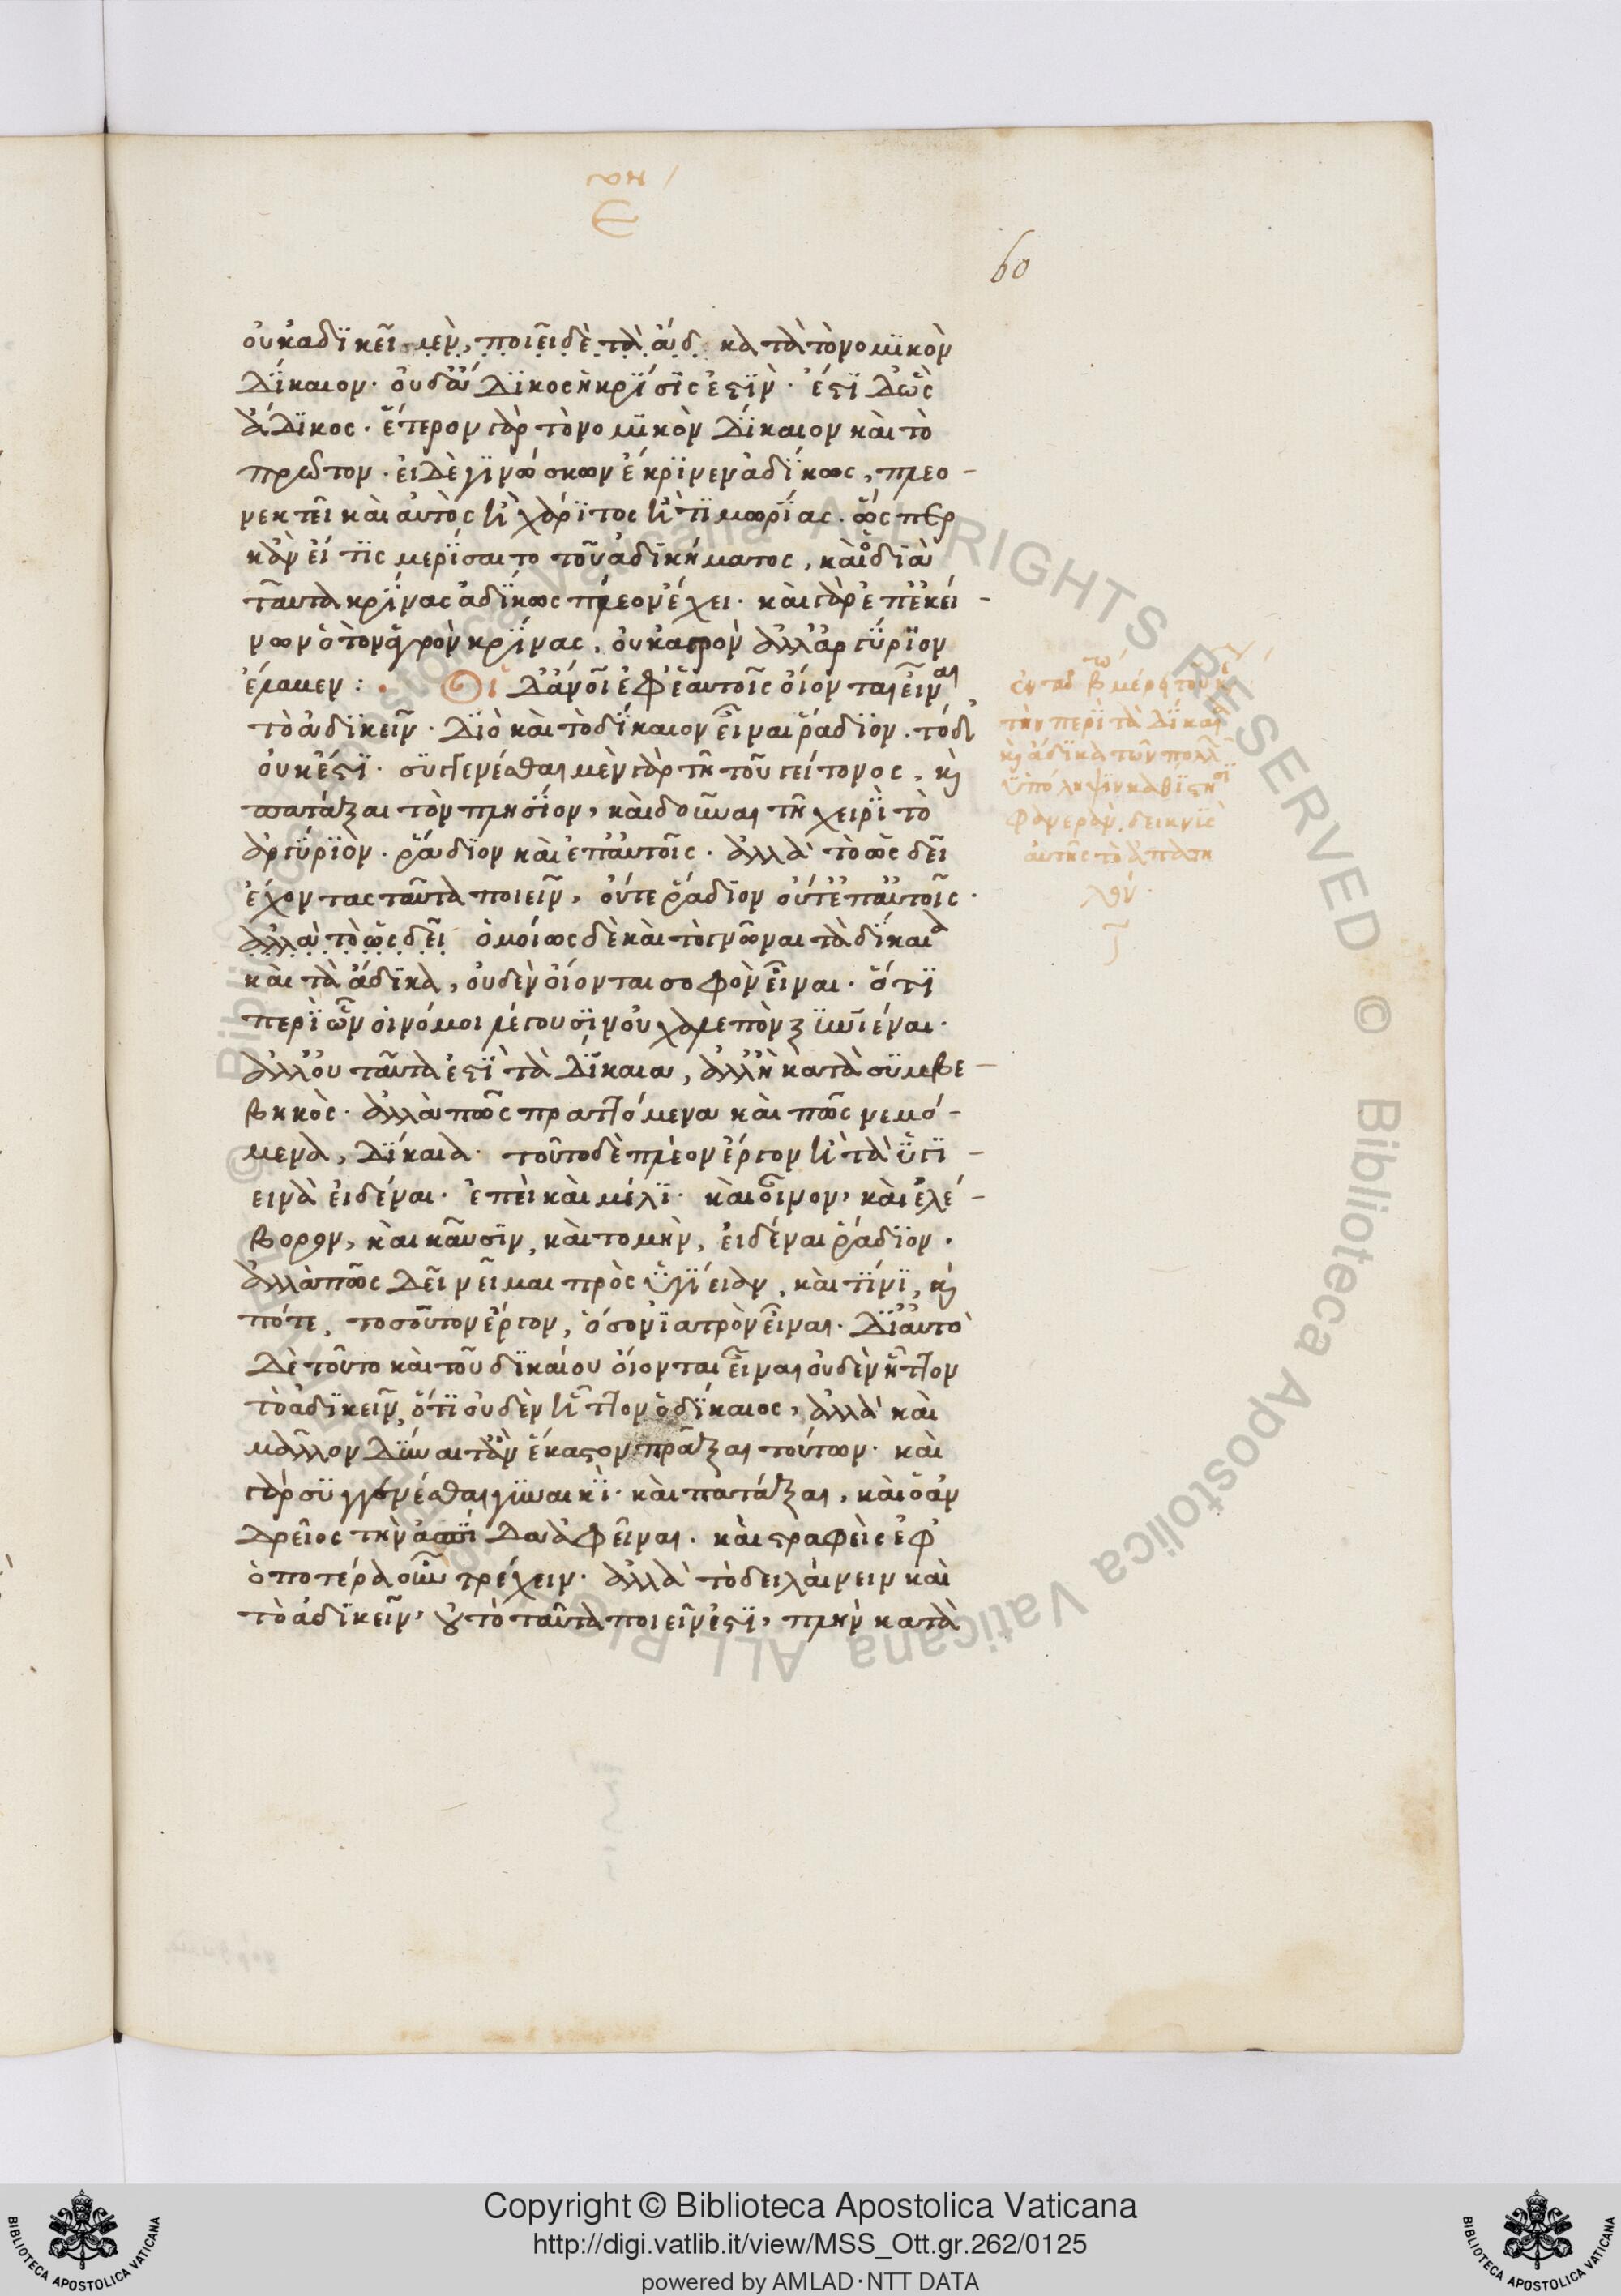 60
οὐκ ἀδϊκεῖ μὲν, ποιεῖ δὲ τὰ ἄδ κατὰ τὸ νομϊκὸν
Δΐκαιον· οὐδ' ἄδϊκος ἡ κρΐσϊς ἐστϊν· ἔστϊ δ' ὡς
ἄδϊκος· ἕτερον γὰρ τὸ νομϊκὸν Δΐκαιον καὶ τὸ
πρῶτον· εἰ δὲ γϊνώσκων ἔκρϊνεν ἀδΐκως, πλεο-
νεκτεῖ καὶ αὐτὸς ἢ χάρϊτος ἢ τϊμωρΐας. ὥσπερ
κἂν εἴ τϊς μερΐσαιτο τοῦ ἀδϊκήματος, καὶ ὁ διὰ
ταῦτα κρΐνας ἀδΐκως πλέον ἔχει· καὶ γὰρ ἐπ' ἐκεί-
νων ὁ τὸν ἀγρὸν κρΐνας, οὐκ ἀγρὸν ἀλλ' ἀργΰρϊον
ἔλαβεν:· Οἱ Δ' ἄνοι ἐφ' ἑαυτοῖς οἴονται εἶναι
τὸ ἀδϊκεῖν· Δϊὸ καὶ τὸ δΐκαιον εἶναι ῥάδϊον. τὸ δ'
οὐκ ἔστϊ· σϋγγενέσθαι μὲν γὰρ τῇ τοῦ γείτονος, κὶ
πατάξαι τὸν πλησΐον, καὶ δοῦναι τῇ χειρϊ τὸ
ἀργΰρϊον· ῥάδϊον καὶ ἐπ' αὐτοῖς· ἀλλὰ τὸ ὡς δεῖ
ἔχοντας ταῦτα ποιεῖν, οὔτε ῥάδϊον οὔτ' ἐπ' αὐτοῖς·
ἀλλὰ τὸ ὡς δεῖ ὁμοίως δὲ καὶ τὸ γνῶναι τὰ δΐκαια
καὶ τὰ ἄδϊκα, οὐδὲν οἴονται σοφὸν εἶναι· ὅτϊ
περϊ ὧν οἱ νόμοι λέγουσϊν οὐ χαλεπὸν ξϋνϊέναι·
ἀλλ' οὐ ταῦτα ἐστϊ τὰ Δΐκαια, ἀλλ' ἢ κατὰ σϋμβε-
βηκὸς· ἀλλὰ πῶς πραττόμενα καὶ πῶς νεμό-
μενα, Δΐκαια· τοῦτο δὲ πλέον ἔργον ἢ τὰ ὑγϊ-
εινὰ εἰδέναι· ἐπεὶ καὶ μέλϊ· καὶ οἶνον, καὶ ἐλέ-
βορον, καὶ καῦσϊν, καὶ τομὴν, εἰδέναι ῥάδϊον·
ἀλλὰ πῶς Δεῖ νεῖμαι πρὸς ὑγΐειαν, καὶ τΐνϊ, κὶ
πότε, τοσοῦτον ἔργον, ὅσον ϊατρὸν εἶναι· Δϊ' αὐτὸ
Δὲ τοῦτο καὶ τοῦ δϊκαίου οἴονται εἶναι οὐδὲν ἧττον
τὸ ἀδϊκεῖν, ὅτϊ οὐδὲν ἧττον ὁ δΐκαιος, ἀλλὰ καὶ
μᾶλλον Δΰναιτ' ἂν ἕκαστον πρᾶξαι τούτων· καὶ
γὰρ σϋγγενέσθαι γϋναικΐ· καὶ πατάξαι, καὶ ὁ ἀν
Δρεῖος τὴν ἀσπΐδα ἀφεῖναι· καὶ στραφεὶς ἐφ'
ὁποτέρα οὖν τρέχειν· ἀλλὰ τὸ δειλαίνειν καὶ
τὸ ἀδϊκεῖν, οὐ τὸ ταῦτα ποιεῖν ἐστϊ, πλὴν κατὰ
τὴν περϊ τὰ Δΐκαια
κὶ ἄδϊκα τῶν πολλ
ὑπόληψϊν
φανερὰν. δεικνϊς
αὐτῆς τὸ ἀπατη
λόν·
Copyright © Biblioteca Apostolica Vaticana
http://digi.vatlib.it/view/MSS_Ott.gr.262/0125
powered by AMLAD·NTT DATA
BIBLIOTECA APOSTOLICA VATICANA
BIBLIOTECA APOSTOLICA VATICANA